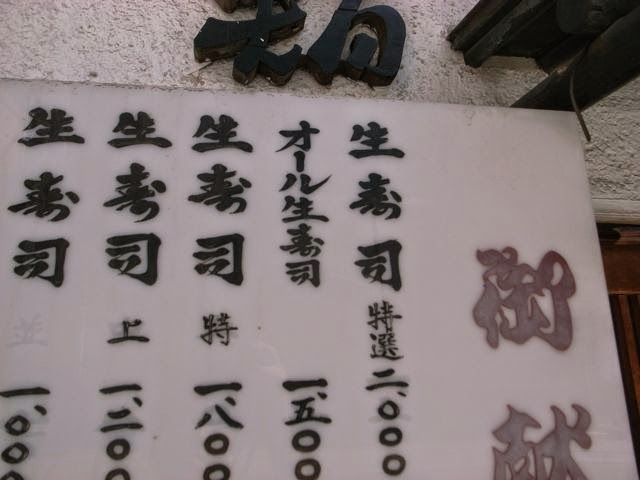 御献
生寿司 特選 二、〇〇〇
オール生寿司 一、五〇〇
生寿司 特 一、八〇〇
生寿司 上 一、二〇〇
生寿司 並 一、〇〇〇